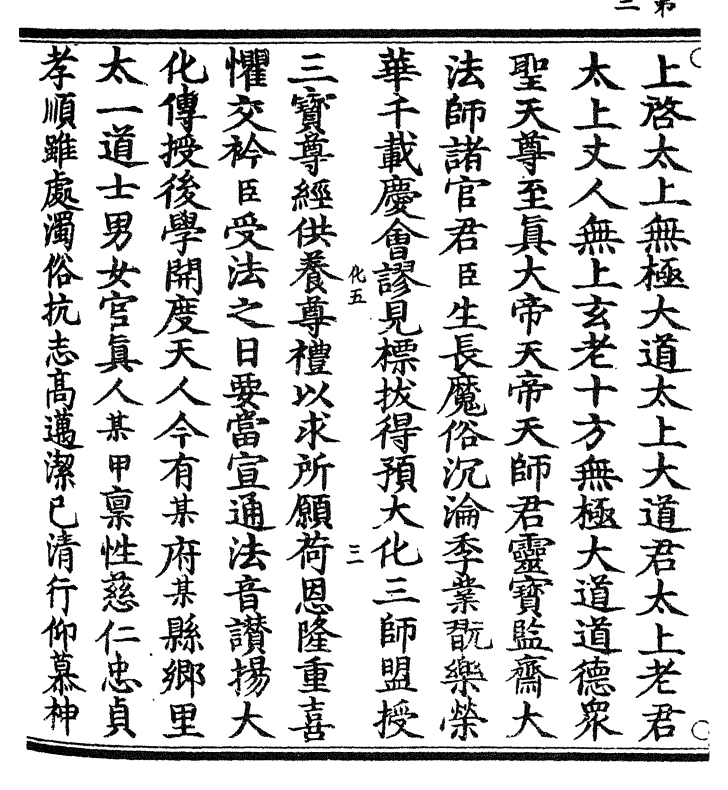 第二
上啓太上無極大道太上大道君太上老君
太上丈人無上玄老十方無極大道道德衆
聖天尊至眞大帝天帝天師君靈寶監齋大
法師諸官君臣生長魔俗沉淪季業翫樂榮
華千載慶會謬見標拔得預大化三師盟授
化五
三
三寶尊經供養尊禮以求所願荷恩隆重喜
懼交衿臣受法之日要當宣通法音讃揚大
化傳授後學開度天人今有某府某縣鄉里
太一道士男女官眞人某甲禀性慈仁忠貞
孝順雖處濁俗抗志高邁潔已清行仰慕神